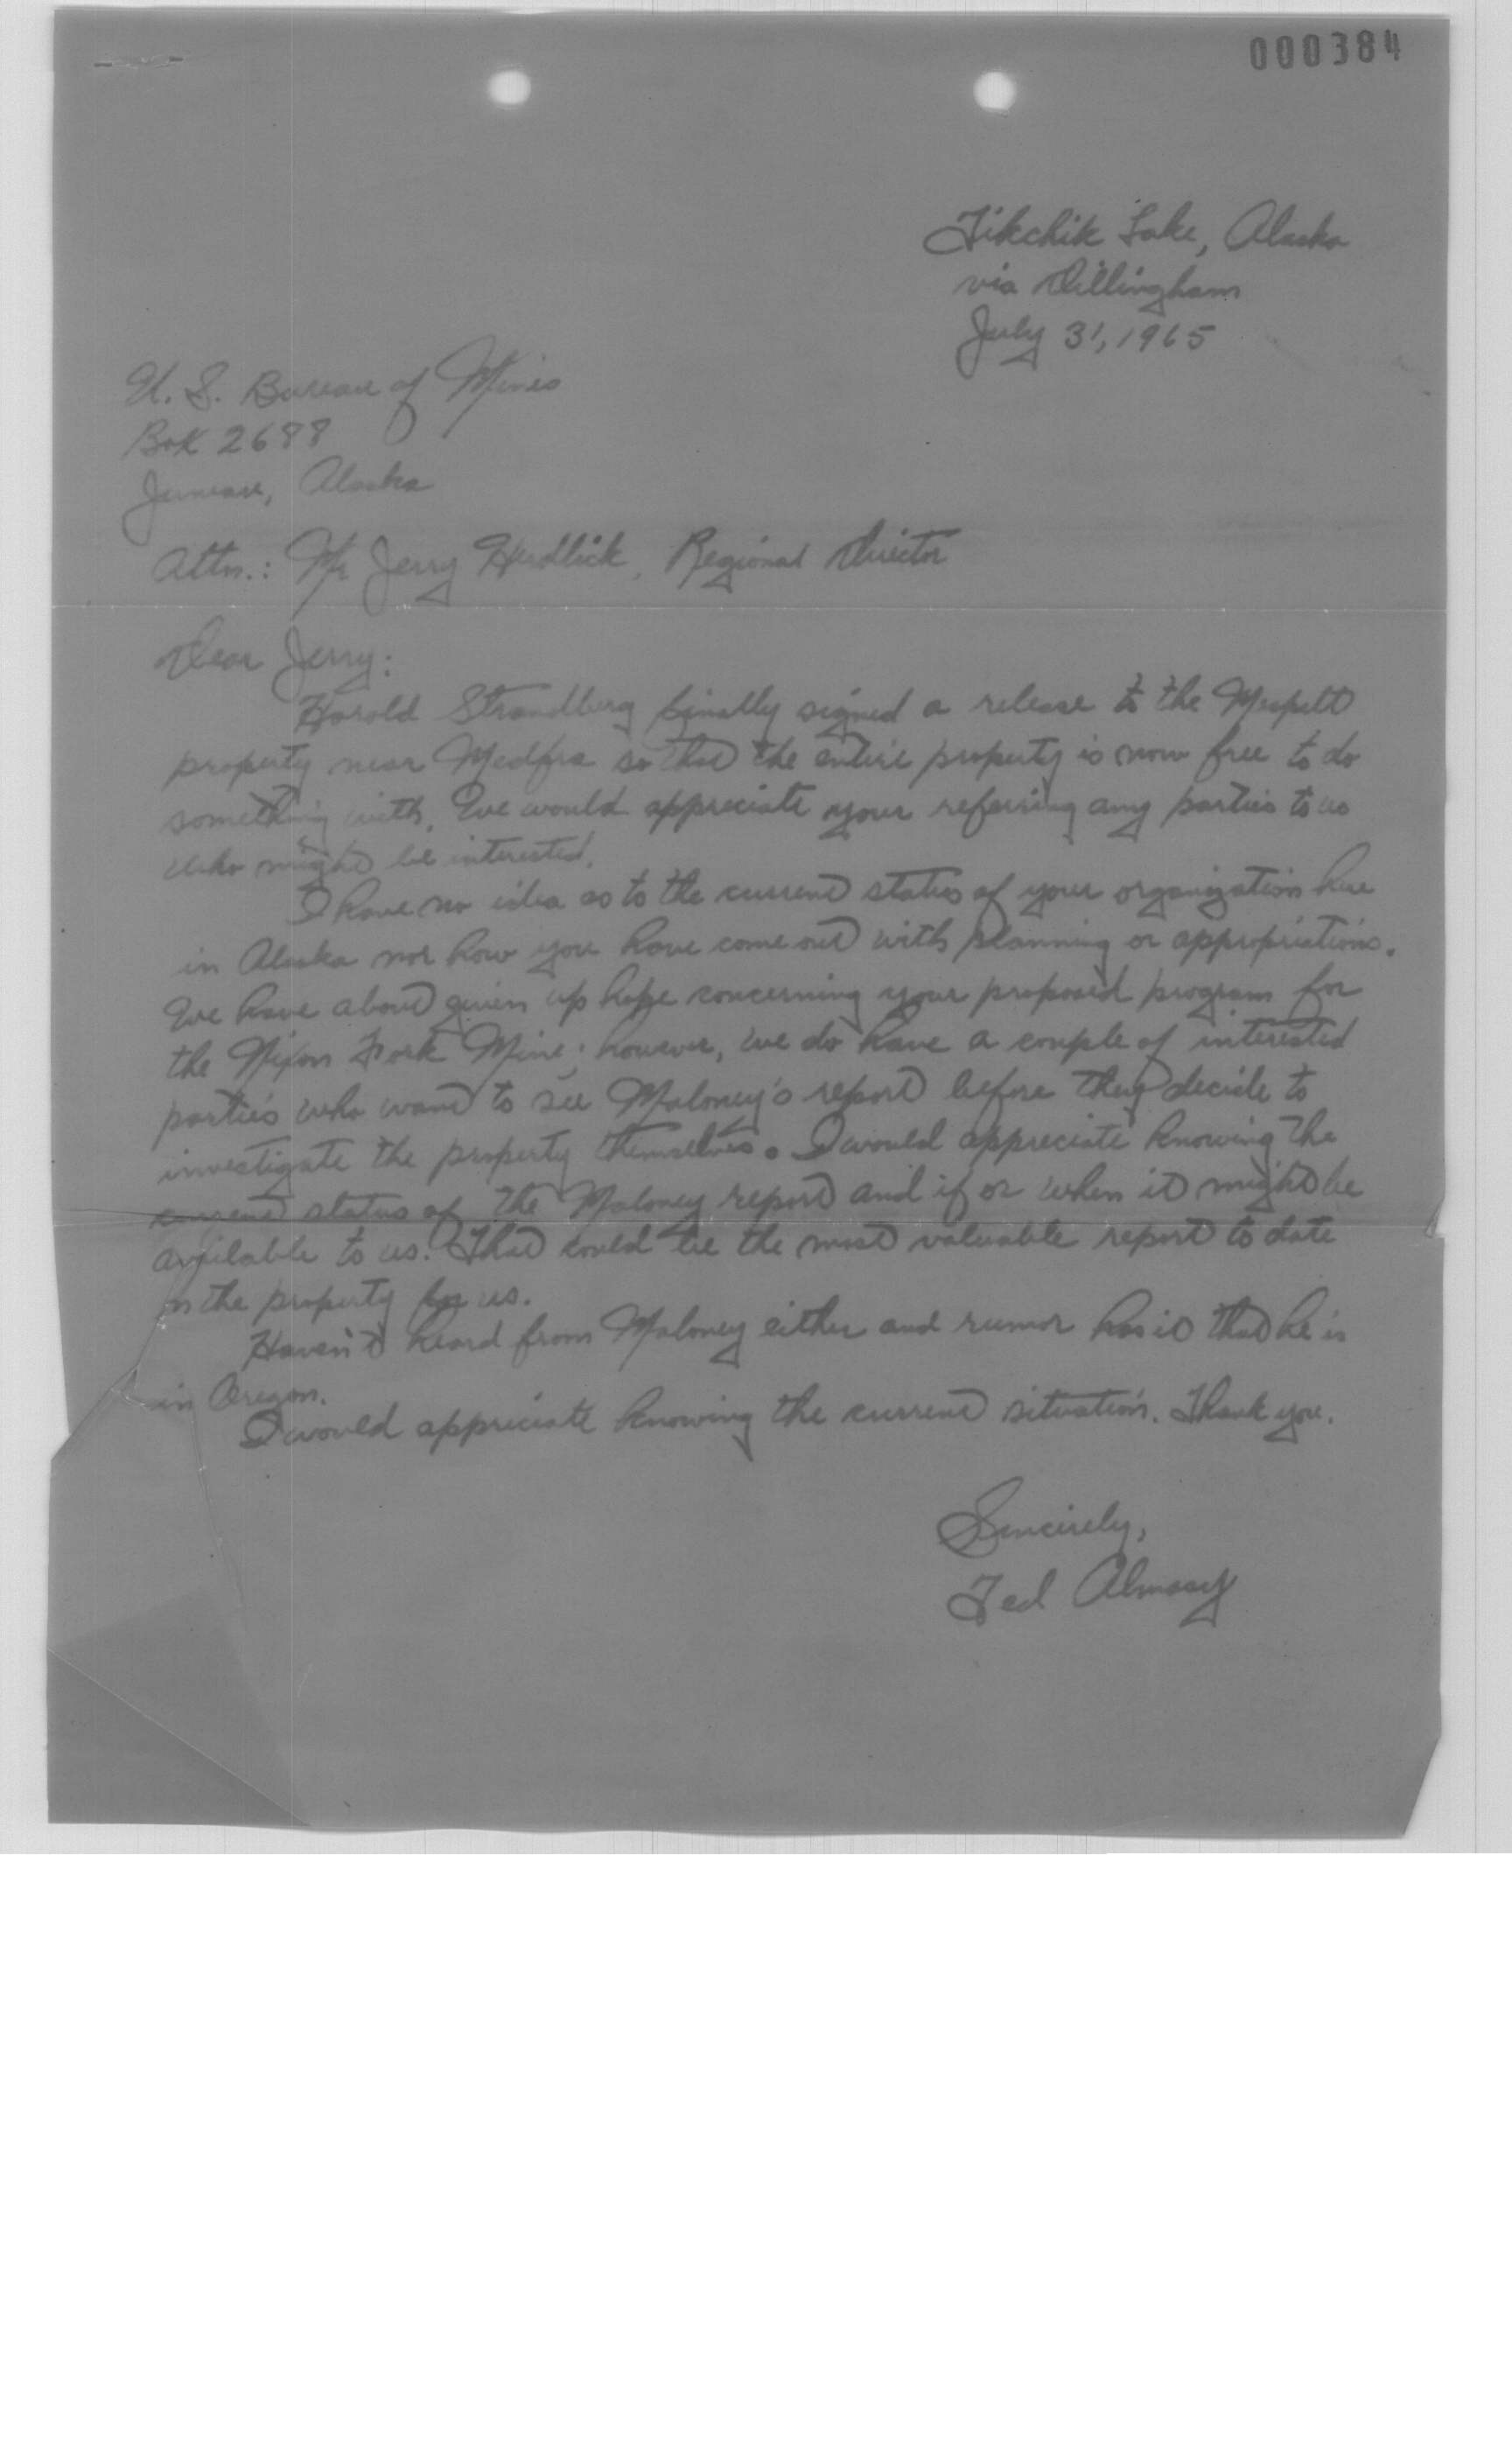 000384
Tikchik Lake, Alaska
via Dillingham
July 31, 1965
U. S. Bureau of Mines
Box 2688
Juneau, Alaska
Attn.: Mr Jerry Hedlick, Regional Director
Dear Jerry:
Harold Strandberg finally signed a release to the Mespelt
property near Medfra so that the entire property is now free to do
something with. We would appreciate your referring any parties to us
who might be interested.
I have no idea as to the current status of your organization here
in Alaska nor how you have come out with planning or appropriations.
We have about given up hope concerning your proposed program for
the Nixon Fork Mine; however, we do have a couple of interested
parties who want to see Maloney's report before they decide to
investigate the property themselves. I would appreciate knowing the
current status of the Maloney report and if or when it might be
available to us. That could be the most valuable report to date
on the property for us.
Haven't heard from Maloney either and rumor has it that he is
in Oregon.
I would appreciate knowing the current situation. Thank you.
Sincerely,
Ted Almasy